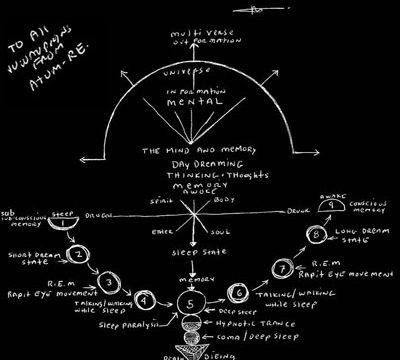 TO All
FROM
ATUM-RE.
MULTIVERSE
OUT FORMATION
UNIVERSE
IN FORMATION
MENTAL
THE MIND AND MEMORY
DAY DREAMING
THINKING · THOUGHTS
MEMORY
AWOKE
SPIRIT
BODY
ETHER
SOUL
SLEEP STATE
MEMORY
SLEEP
1
SUB CONSCIOUS
MEMORY
2
SHORT DREAM
STATE
3
R.E.M
RAPIT EYE MOVEMENT
4
TALKING/WALKING
While SLEEP
SLEEP PARALYSIS
5
DEEP SLEEP
HYPNOTIC TRANCE
COMA/DEEP SLEEP
DIEING
6
TALKING/WALKING
While SLEEP
7
R.E.M
RAPIT EYE MOVEMENT
8
LONG DREAM
STATE
AWAKE
9
CONSCIOUS
MEMORY